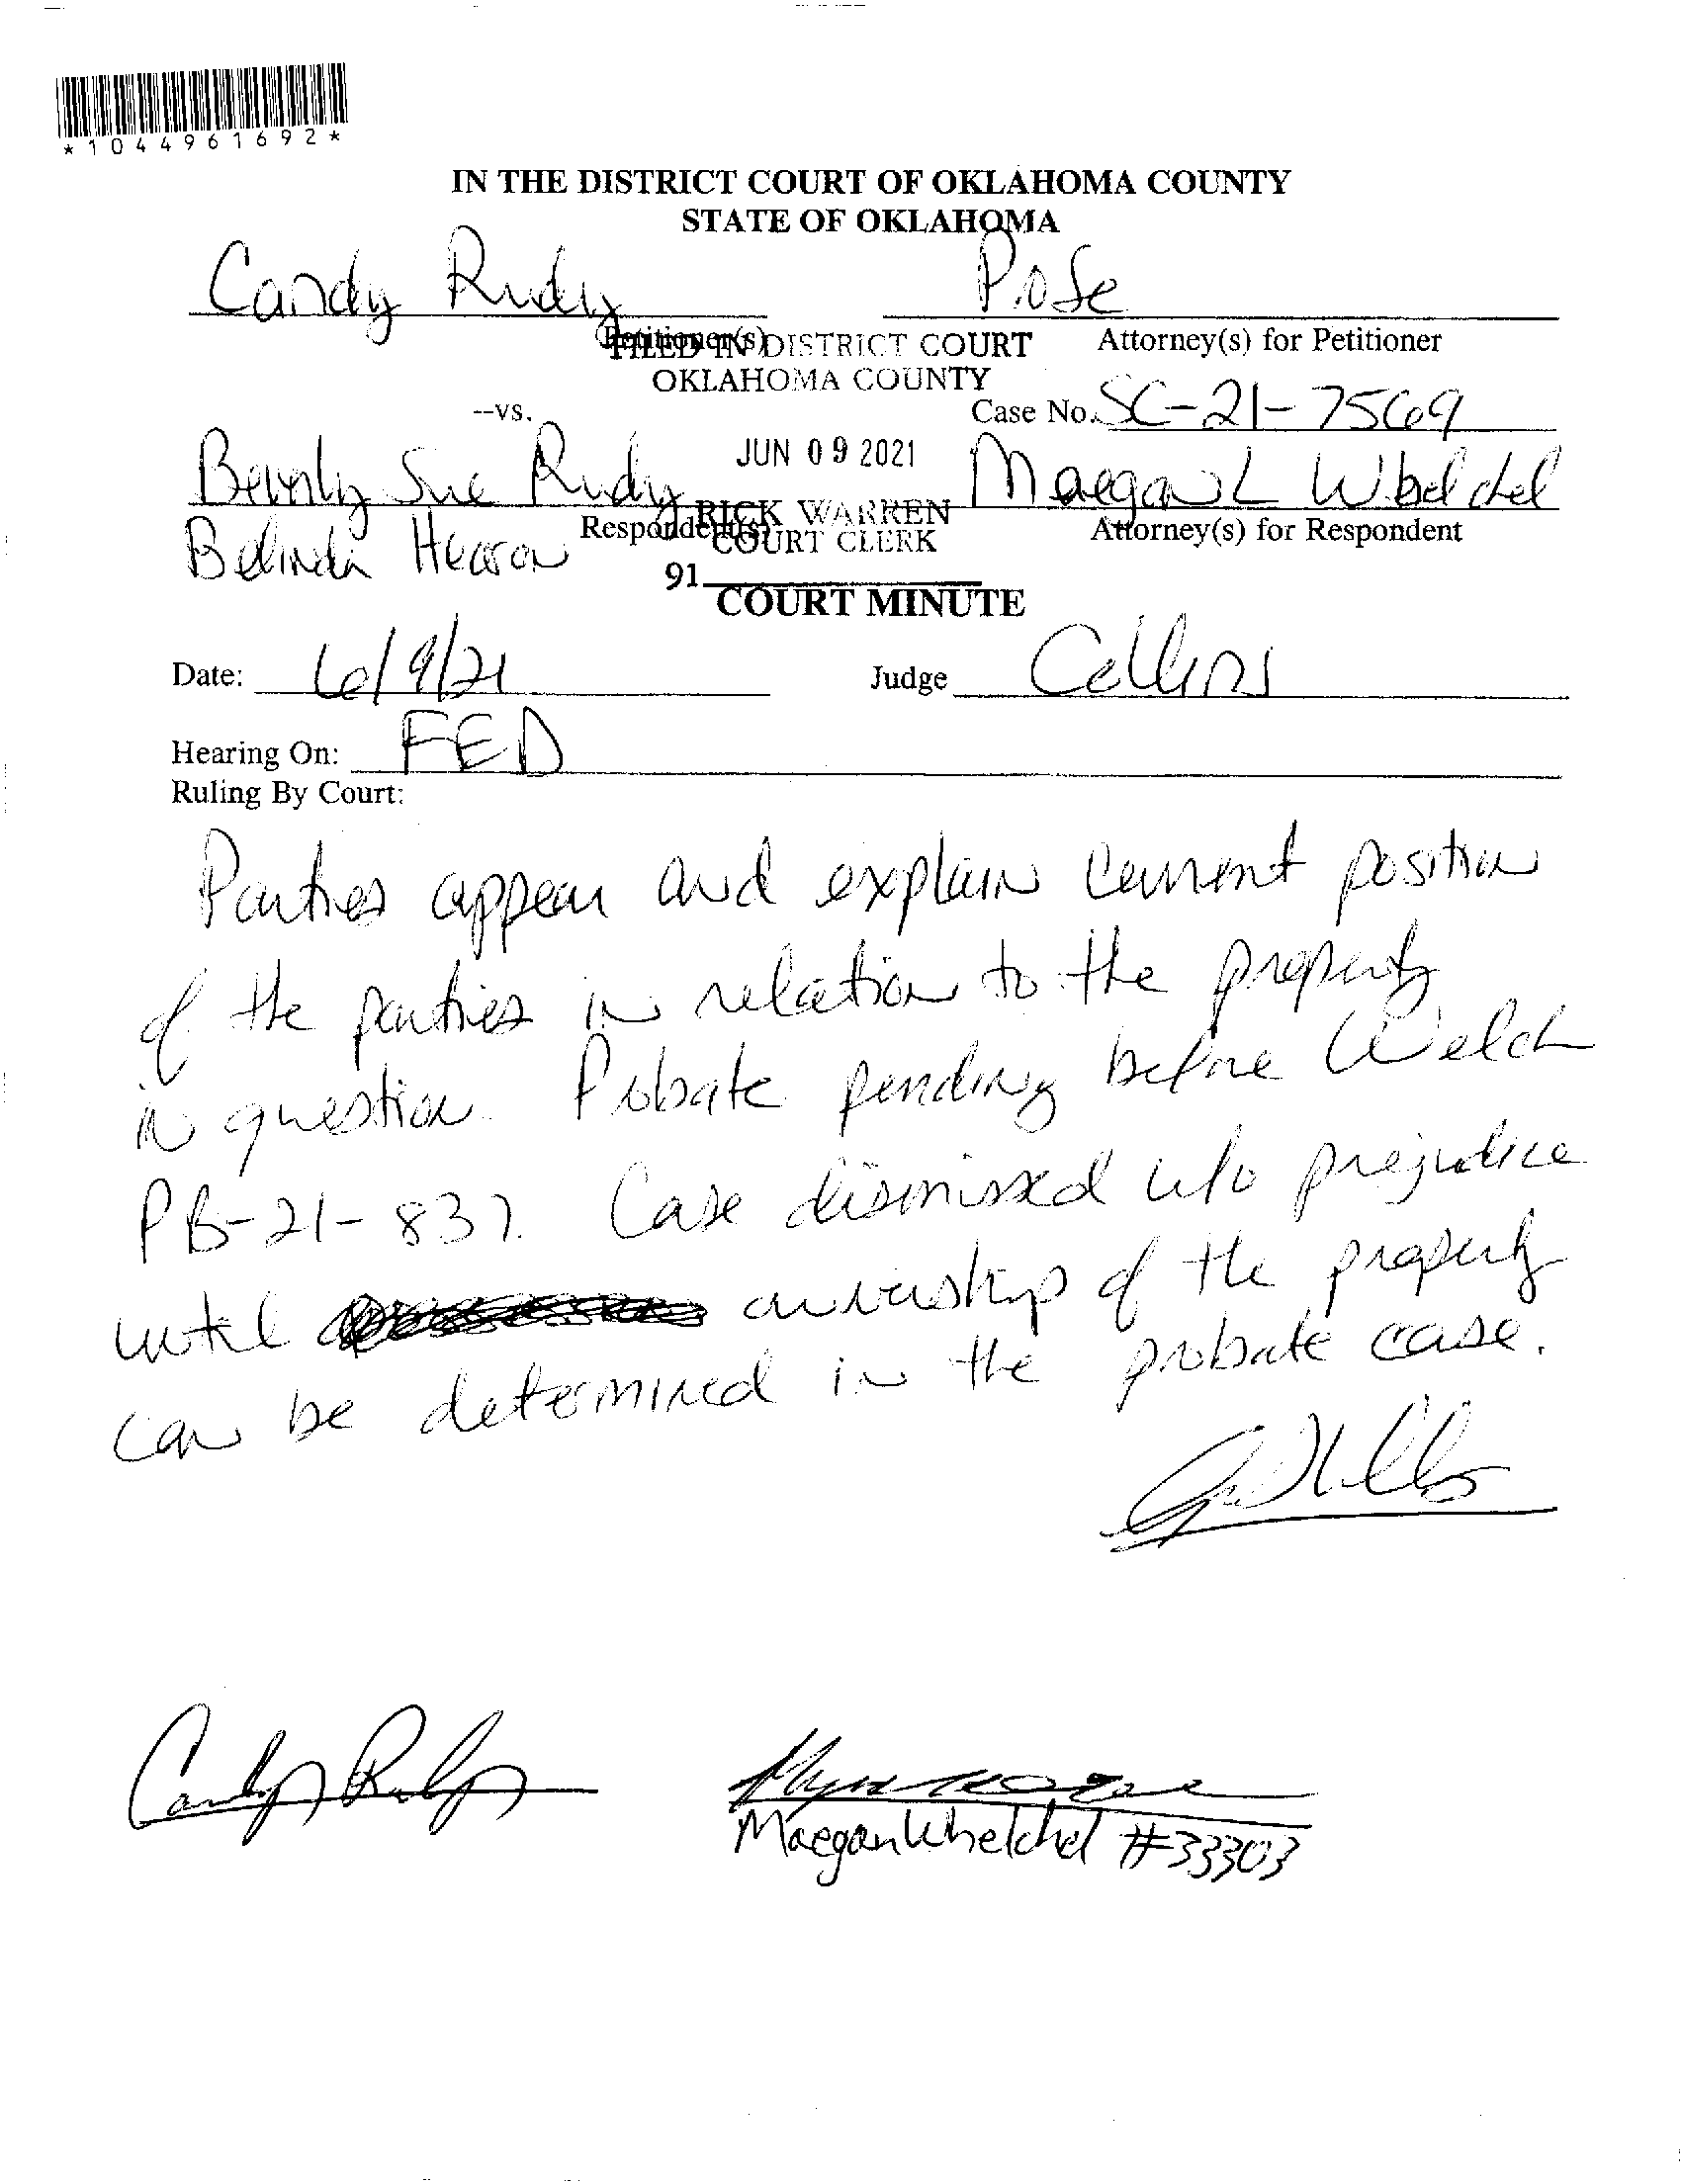 *1044961692*
IN THE DISTRICT COURT OF OKLAHOMA COUNTY
STATE OF OKLAHOMA
Candy Rudy
Pro Se
Petitioner(s)
Attorney(s) for Petitioner
FILED IN DISTRICT COURT
OKLAHOMA COUNTY
--vs.
Case No. SC-21-7569
JUN 09 2021
Beverly Sue Rudy
Maegan L Whelchel
RICK WARREN
COURT CLERK
Respondent(s)
Attorney(s) for Respondent
Belinda Hearon
91
COURT MINUTE
Date: 6/9/21
Judge Collins
Hearing On: FED
Ruling By Court:
Parties appear and explain current position
of the parties in relation to the property
in question. Probate pending before Welch
PB-21-837. Case dismissed w/o prejudice
until ownership of the property
can be determined in the probate case.
Candy Rudy
Maegan Whelchel #33303